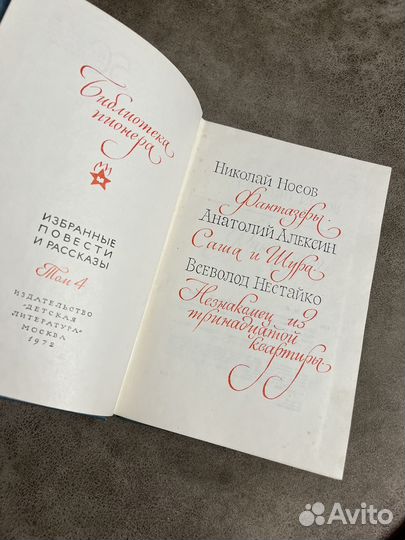 Библиотека
пионера
ИЗБРАННЫЕ
ПОВЕСТИ
И РАССКАЗЫ
Том 4
ИЗДАТЕЛЬСТВО
"ДЕТСКАЯ
ЛИТЕРАТУРА"
МОСКВА
1972
Николай Носов
Фантазеры.
Анатолий Алексин
Саша и Шура.
Всеволод Нестайко
Незнакомец из
тринадцатой
квартиры.
Avito